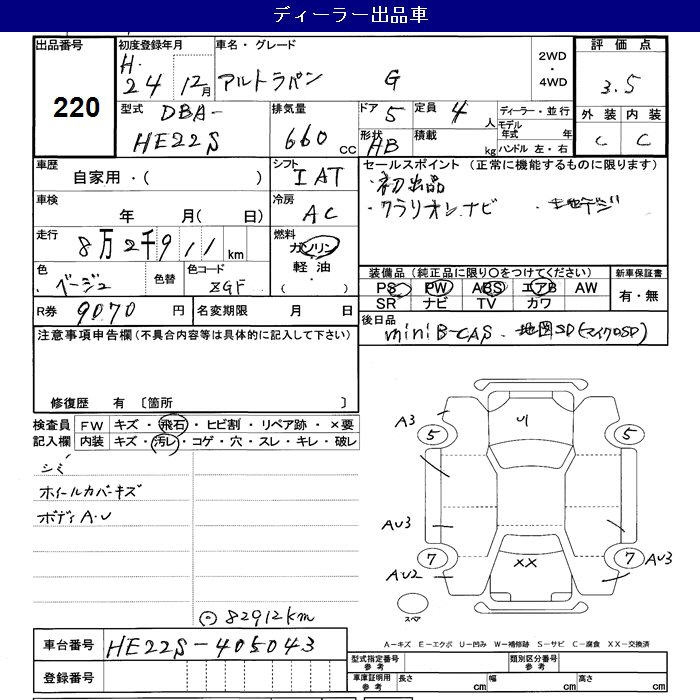 ディーラー出品車
出品番号
220
初度登録年月
H.
24 12月
車名・グレード
アルトラパン G
2WD
・
4WD
評価点
3.5
外装 内装
C C
型式
DBA-
HE22S
排気量
660 CC
ドア 5
形状 HB
定員 4 人
積載 kg
ディーラー・並行
モデル年式 年
ハンドル 左・右
車歴
自家用・( )
シフト
I AT
車検
年 月( 日)
冷房
AC
走行
8万2千911 km
燃料
ガソリン
軽油
・
( )
色
ベージュ
色替
色コード
ZGF
R券 9070 円
名変期限 月 日
セールスポイント (正常に機能するものに限ります)
・初出品
・クラリオンナビ ・地デジ
装備品(純正品に限り〇をつけてください)
PS PW ABS エアB AW
SR ナビ TV カワ
新車保証書
有・無
後日品
miniB-CAS・地図SD(マイクロSD)
注意事項申告欄(不具合内容等は具体的に記入して下さい)
修復歴 有 〔箇所 〕
検査員記入欄
FW キズ・飛石・ヒビ割・リペア跡・×要
内装 キズ・汚レ・コゲ・穴・スレ・キレ・破レ
シミ
ホイールカバーキズ
ボディA・U
82912km
A3
5
5
AU3
7
7
AU3
A・U2
XX
スペア
A-キズ E-エクボ U-凹み W-補修跡 S-サビ C-腐食 XX-交換済
車台番号 HE22S-405043
登録番号
型式指定番号
参考
類別区分番号
参考
車庫証明用
参考
長さ cm
幅 cm
高さ cm